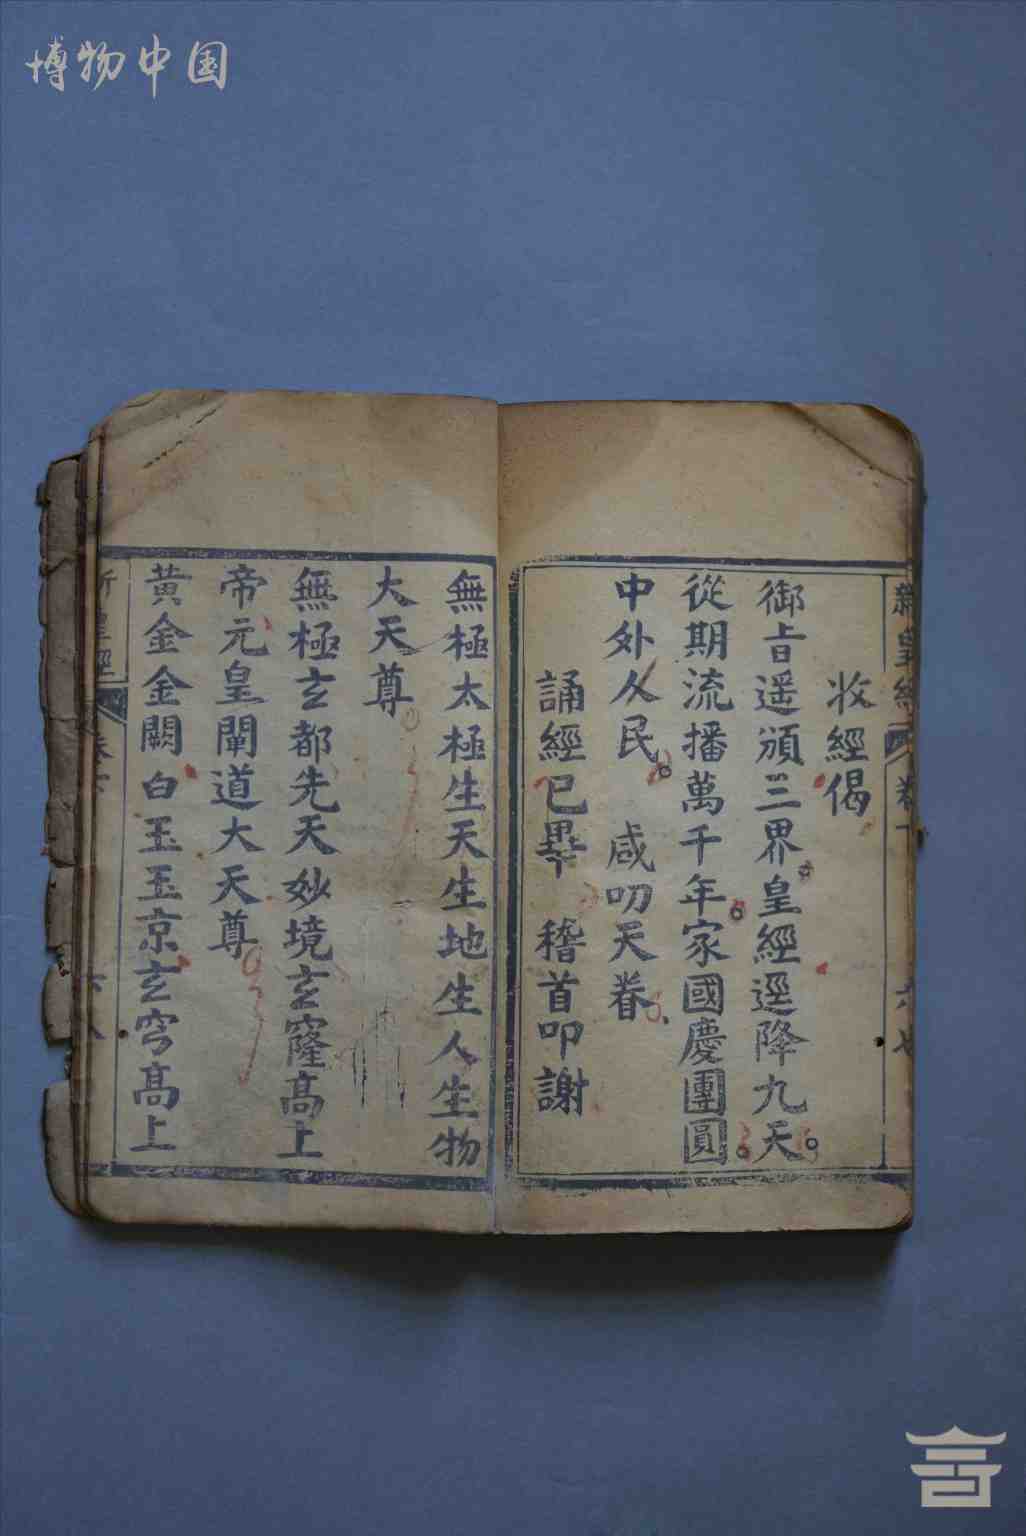 博物中国
新皇經
收經偈
御旨遥頒三界皇經逕降九天
從期流播萬千年家國慶團圓
中外人民 咸叨天眷
誦經已畢 稽首叩謝
無極太極生天生地生人生物
大天尊
無極玄都先天妙境玄窿高上
帝元皇闡道大天尊
黃金金闕白玉玉京玄穹高上
新皇經
六八